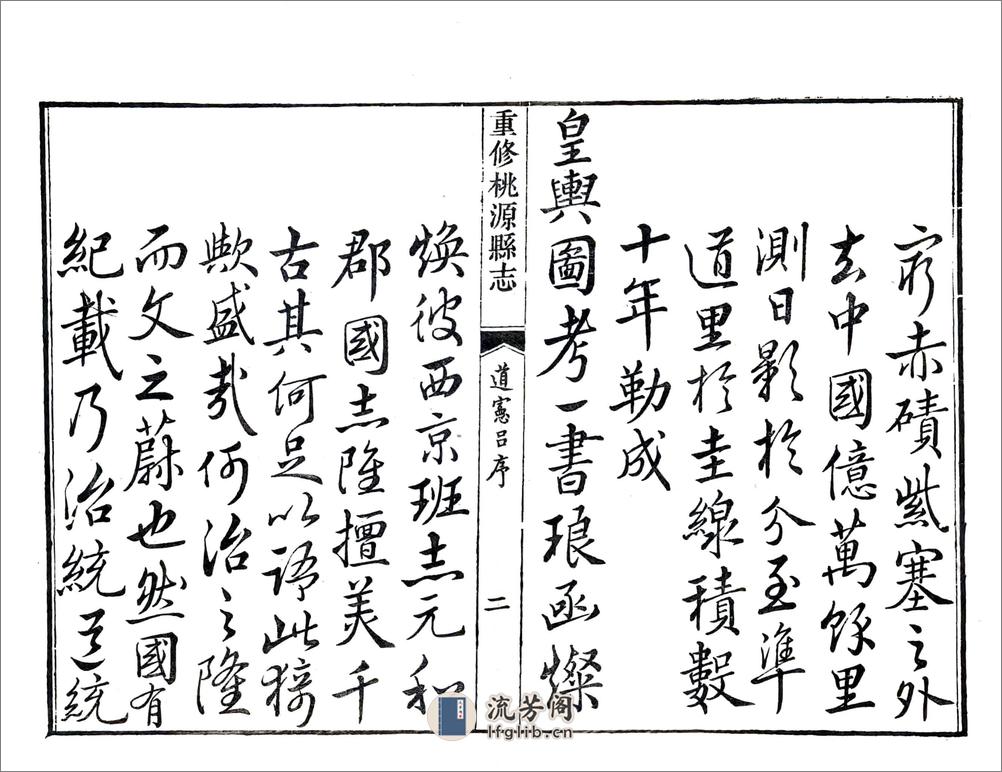 窮赤磧紫塞之外
去中國億萬餘里
測日影於分至準
道里於圭線積數
十年勒成
皇輿圖考一書琅函燦
重修桃源縣志
道憲呂序
二
煥彼西京班志元和
郡國志雖擅美千
古其何足以語此猗
歟盛哉何治之隆
而文之蔚也然國有
紀載乃治統道統
流芳阁
lfglib.cn